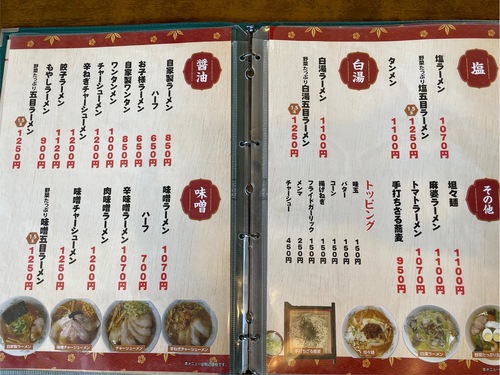 醤油
自家製ラーメン 850円
ハーフ 650円
お子様ラーメン 650円
自家製ワンタン 850円
ワンタンメン 1000円
チャーシューメン 1200円
辛ねぎチャーシューメン 1200円
餃子ラーメン 1120円
もやしラーメン 900円
野菜たっぷり 五目ラーメン 1250円
味噌
味噌ラーメン 1070円
ハーフ 700円
辛味噌ラーメン 1070円
肉味噌ラーメン 1200円
味噌チャーシューメン 1250円
野菜たっぷり 味噌五目ラーメン 1250円
自家製ラーメン
味噌チャーシューメン
チャーシューメン
辛ねぎチャーシューメン
塩
塩ラーメン 1070円
野菜たっぷり 塩五目ラーメン 1250円
タンメン 1100円
白湯
白湯ラーメン 1100円
野菜たっぷり 白湯五目ラーメン 1250円
その他
坦々麺 1100円
麻婆ラーメン 1100円
トマトラーメン 1070円
手打ちざる蕎麦 950円
トッピング
味玉 150円
バター 150円
コーン 150円
揚げねぎ 150円
フライドガーリック 150円
メンマ 250円
チャーシュー 450円
手打ちざる蕎麦
坦々麺
白湯ラーメン